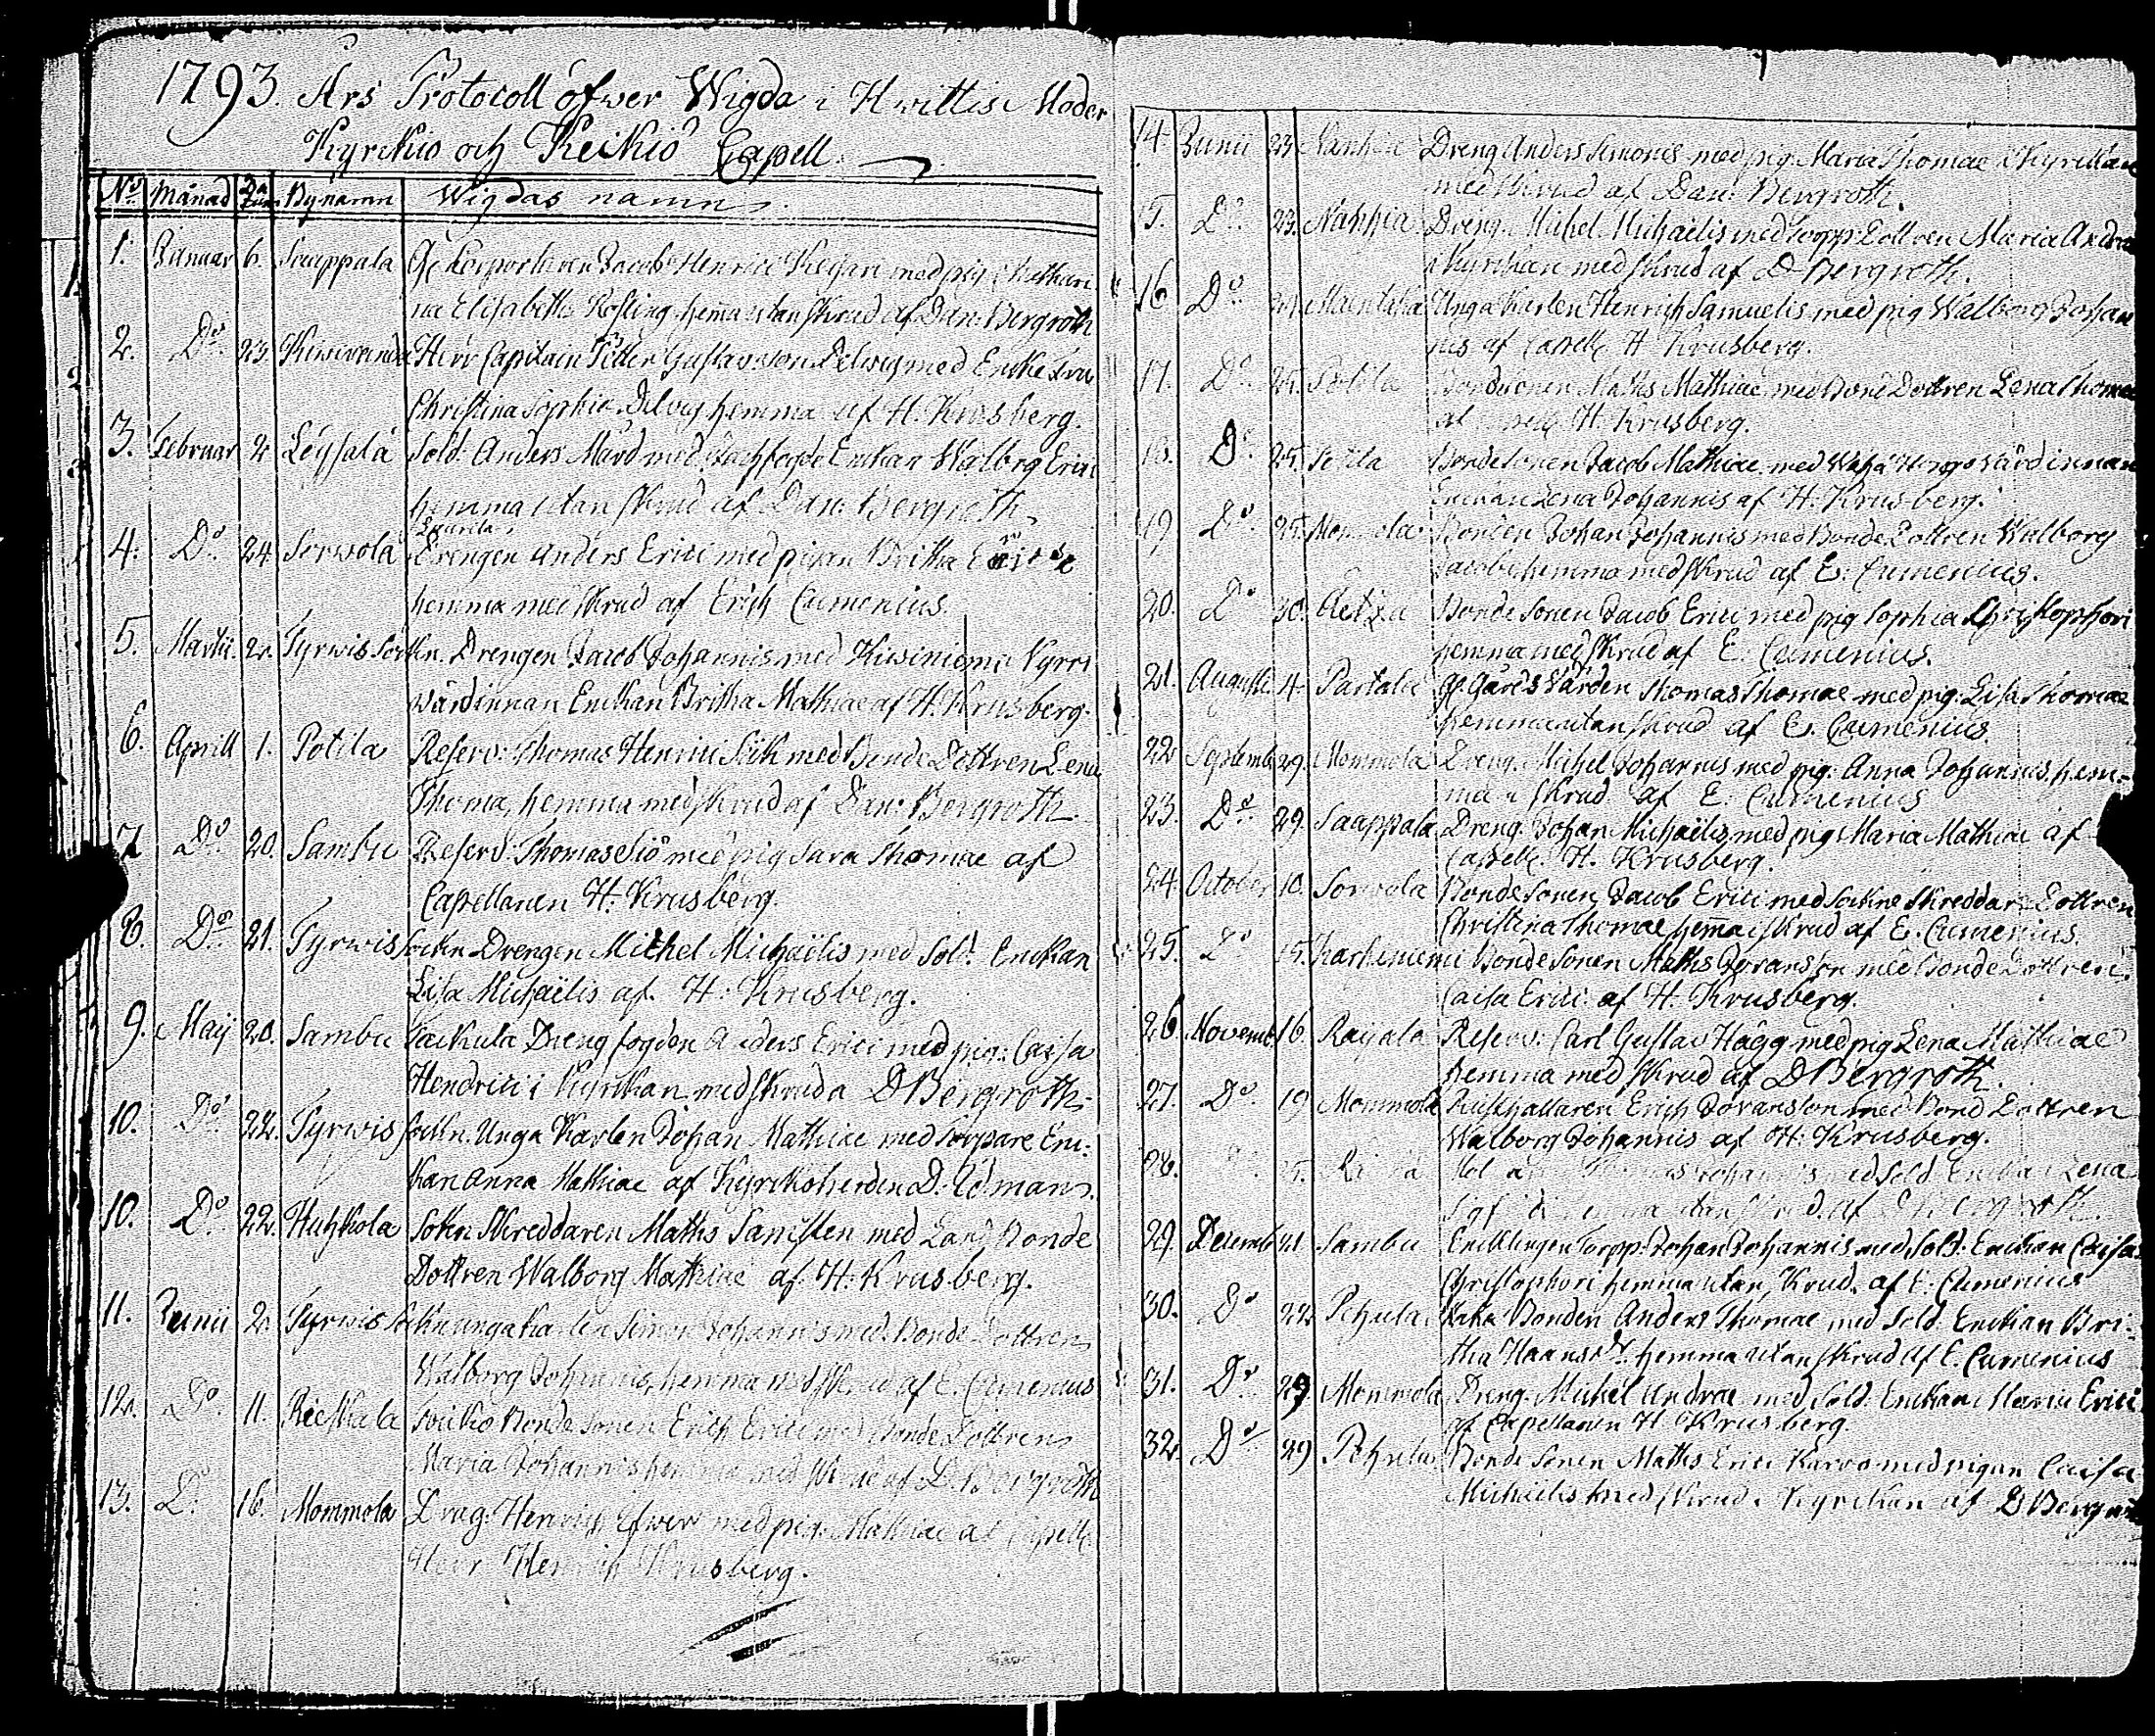 1793. Års Protocoll öfwer Wigda i Hwittis Moder
Kyrckio och Keikiö Capell.
No Månad Datum Bynamn Wigdas namn
1. Januar 6. Sauppala Gl. Korporalen Jacob Henrici Keijari med pig. Cathari
na Elisabeth Rosling hemma utan skrud af Dan: Bergroth
2. Do 23. Herr Capitain Petter Gustavsson Delwig med Encke Fru
Christina Sophia Delwig hemma af H. Krusberg.
3. Februar 2 Leijsala Sold. Anders Mård med Enckan Walbrg Erici
hemma utan skrud af Dan: Bergroth
4. Do 24. Sorwola Drengen Anders Erici med pigan Britha
hemma med skrud af Erich Cumenius.
5. Martii 2. Tyrwis Sockn. Drengen Jacob Johannis med Kiwiniemi Nyrri
wärdinnan Enckan Britha Mathiae af H. Krusberg.
6. Aprill 1. Potila Reserv: Thomas Henrici Siik med Bonde Dottren Lena
Thoma, hemma med skrud af Dan: Bergroth
7. Do 20. Sambu Reserv: Thomas Siö med pig Sara Thomae af
Capellanen H. Krusberg.
8. Do 21. Tyrwis Sockn Drengen Michel Michaëlis med Sold. Enckan
Lisa Michaëlis af H. Krusberg.
9. Maij 20. Sambu Dreng fogden Anders Erici med pig. Caisa
Hendrici i Kyrckan med skrud a D Bergroth
10. Do 22. Tyrwis Sockn. Unga Karlen Johan Mathiae med Torpare En:
kan Anna Mathiae af Kyrckoherden D. Edman.
10. Do 22. Huhkola Sokn Skreddaren Maths Samsten med Land Bonde
Dottren Walborg Mathiae af H. Krusberg.
11. Junii 2. Tyrwis Sockn unga Karlen Simon Johannis med Bonde Dottren
Walborg Johannis, hemma med skrud af E. Cumenius
12. Do 11. Rieskala Bonde Sonen Erich Erici med Bonde Dottren
Maria Johannis hemma med skrud af D. Bergroth
13. Do 16. Mommola Drag: Henrich med pig: Mathiae af Capell.
Herr Henrich Krusberg.
14. Junii 23. Dreng Anders Simonis med pig Maria Thomae i Kyrckan
med skrud af Dan: Bergroth.
15. Do 23. Dreng. Michel Michaëlis med Torpp: Dottren Maria Andrae
i Kyrckan med skrud af D Bergroth.
16. Do Unga Karlen Henrich Samuelis med pig Walborg Johan
nis af Capell. H. Krusberg.
17. Do 25. Potila Bonde Sonen Maths Mathiae med Bond Dottren Lena Thomae
af Capell. H. Krusberg.
18. Do 25. Potila Bonde Sonen Jacob Mathiae med wärdinnan
Enckan Lena Johannis af H. Krusberg.
19. Do 25. Mommola Bonden Johan Johannis med Bonde Dottren Walborg
Jacobi hemma med skrud af E. Cumenius.
20. Do 30. Bonde Sonen Jacob Erici med pig Sophia Christophori
hemma med skrud af E. Cumenius.
21. Augusti 4. Partala Gl. Gårds Värden Thomas Thomae med pig. Lisa Thomae
hemma utan skrud af E. Cumenius.
22. Septemb. 29. Mommola Dreng. Michel Johannis med pig. Anna Johannis hem-
ma i skrud af E. Cumenius
23. Do 29. Saappala Dreng. Johan Michaëlis med pig Maria Mathiae af
Capell. H. Krusberg.
24. October 10. Sorwola Bonde Sonen Jacob Erici med Sockne Skreddare Dottren
Christina Thomae hemma i skrud af E. Cumenius.
25. Do 15. Bonde Sonen Maths Göransson med Bonde Dottren
Caisa Erici af H. Krusberg.
26. Novemb. 16. Raijala Reserv: Carl Gustav Hägg med pig Lena Mathiae
hemma med skrud af D Bergroth.
27. Do 19 Mommola Rusthållaren Erich Göransson med Bond Dottren
Walborg Johannis af H. Krusberg.
28. Johannis med Sold. Enckan Lena
hemma utan skrud af
29. Decemb. 21 Sambu Encklingen Torpp: Johan Johannis med Sold. Enckan Caisa
Christophori hemma utan skrud. af E. Cumenius
30. Do 22 Pehula Bonden Anders Thomae med Sold. Enckan Bri-
tha Haansdr. hemma utan skrud af E. Cumenius
31. Do 29 Mommola Dreng. Michel Andrae med Sold. Enckan Maria Erici
af Capellanen H Krusberg.
32. Do 29 Pehula Bonde Sonen Maths Erici Karwo med pigan Caisa
Michaëlis med skrud i Kyrckan af D Bergroth